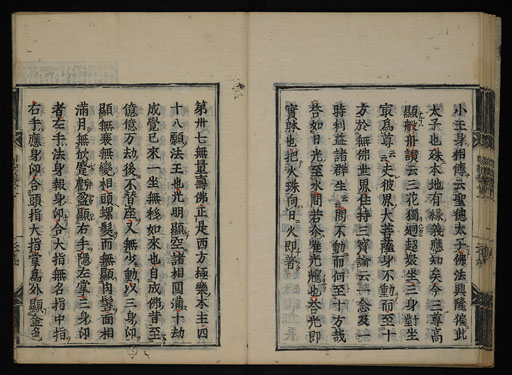 小王身相傳云聖德太子佛法興隆偏此
太子也殊本地有緣義應知矣今三尊高
顯般舟讚云三花獨迥超衆坐三身對坐
最為尊云史彼界大菩薩身不動而至十
方於無佛世界住持三寶論云一念及一
時利益諸群生云問不動而何至十方哉
答如日光至水間若令雖光耀也答光即
實躰也把火珠向日火即着
第卅七無量壽佛正是西方極樂本主四
十八願法王也光明顯空諸相圓滿十劫
成覺已來一坐無移如來也自成佛昔至
億億万劫後不暫座又無少動以三身仰
顯無衰無變相頭螺髮而無顯肉髻面相
滿月無欠虧顯右手隱左掌三身仰
者左手法身報身仰合大指無名指中指
右手應身仰合頭指大指掌為外顯金色